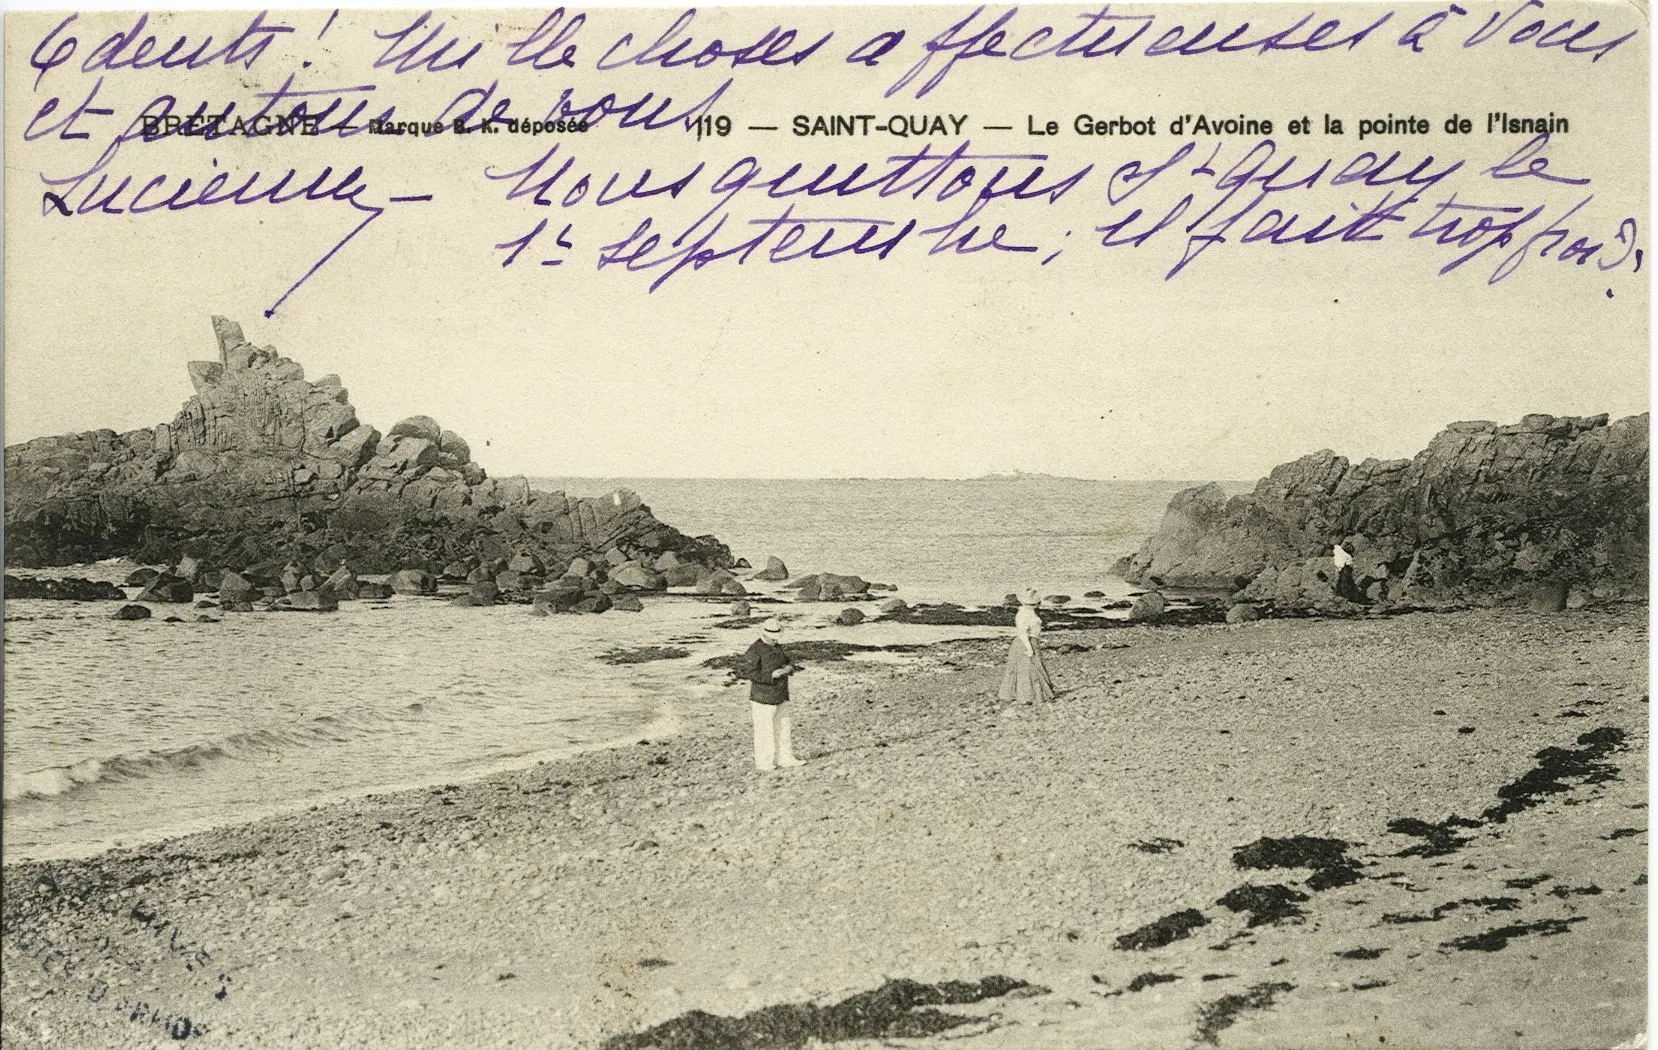 6 dents! Mille choses affectueuses à vous
et autour de vous.
BRETAGNE — Marque B. K. déposée 119 — SAINT-QUAY — Le Gerbot d'Avoine et la pointe de l'Isnain
Lucienne — Nous quittons St Quay le
1er septembre; il fait trop froid.
ARCHIVES
DES
CÔTES D'ARMOR